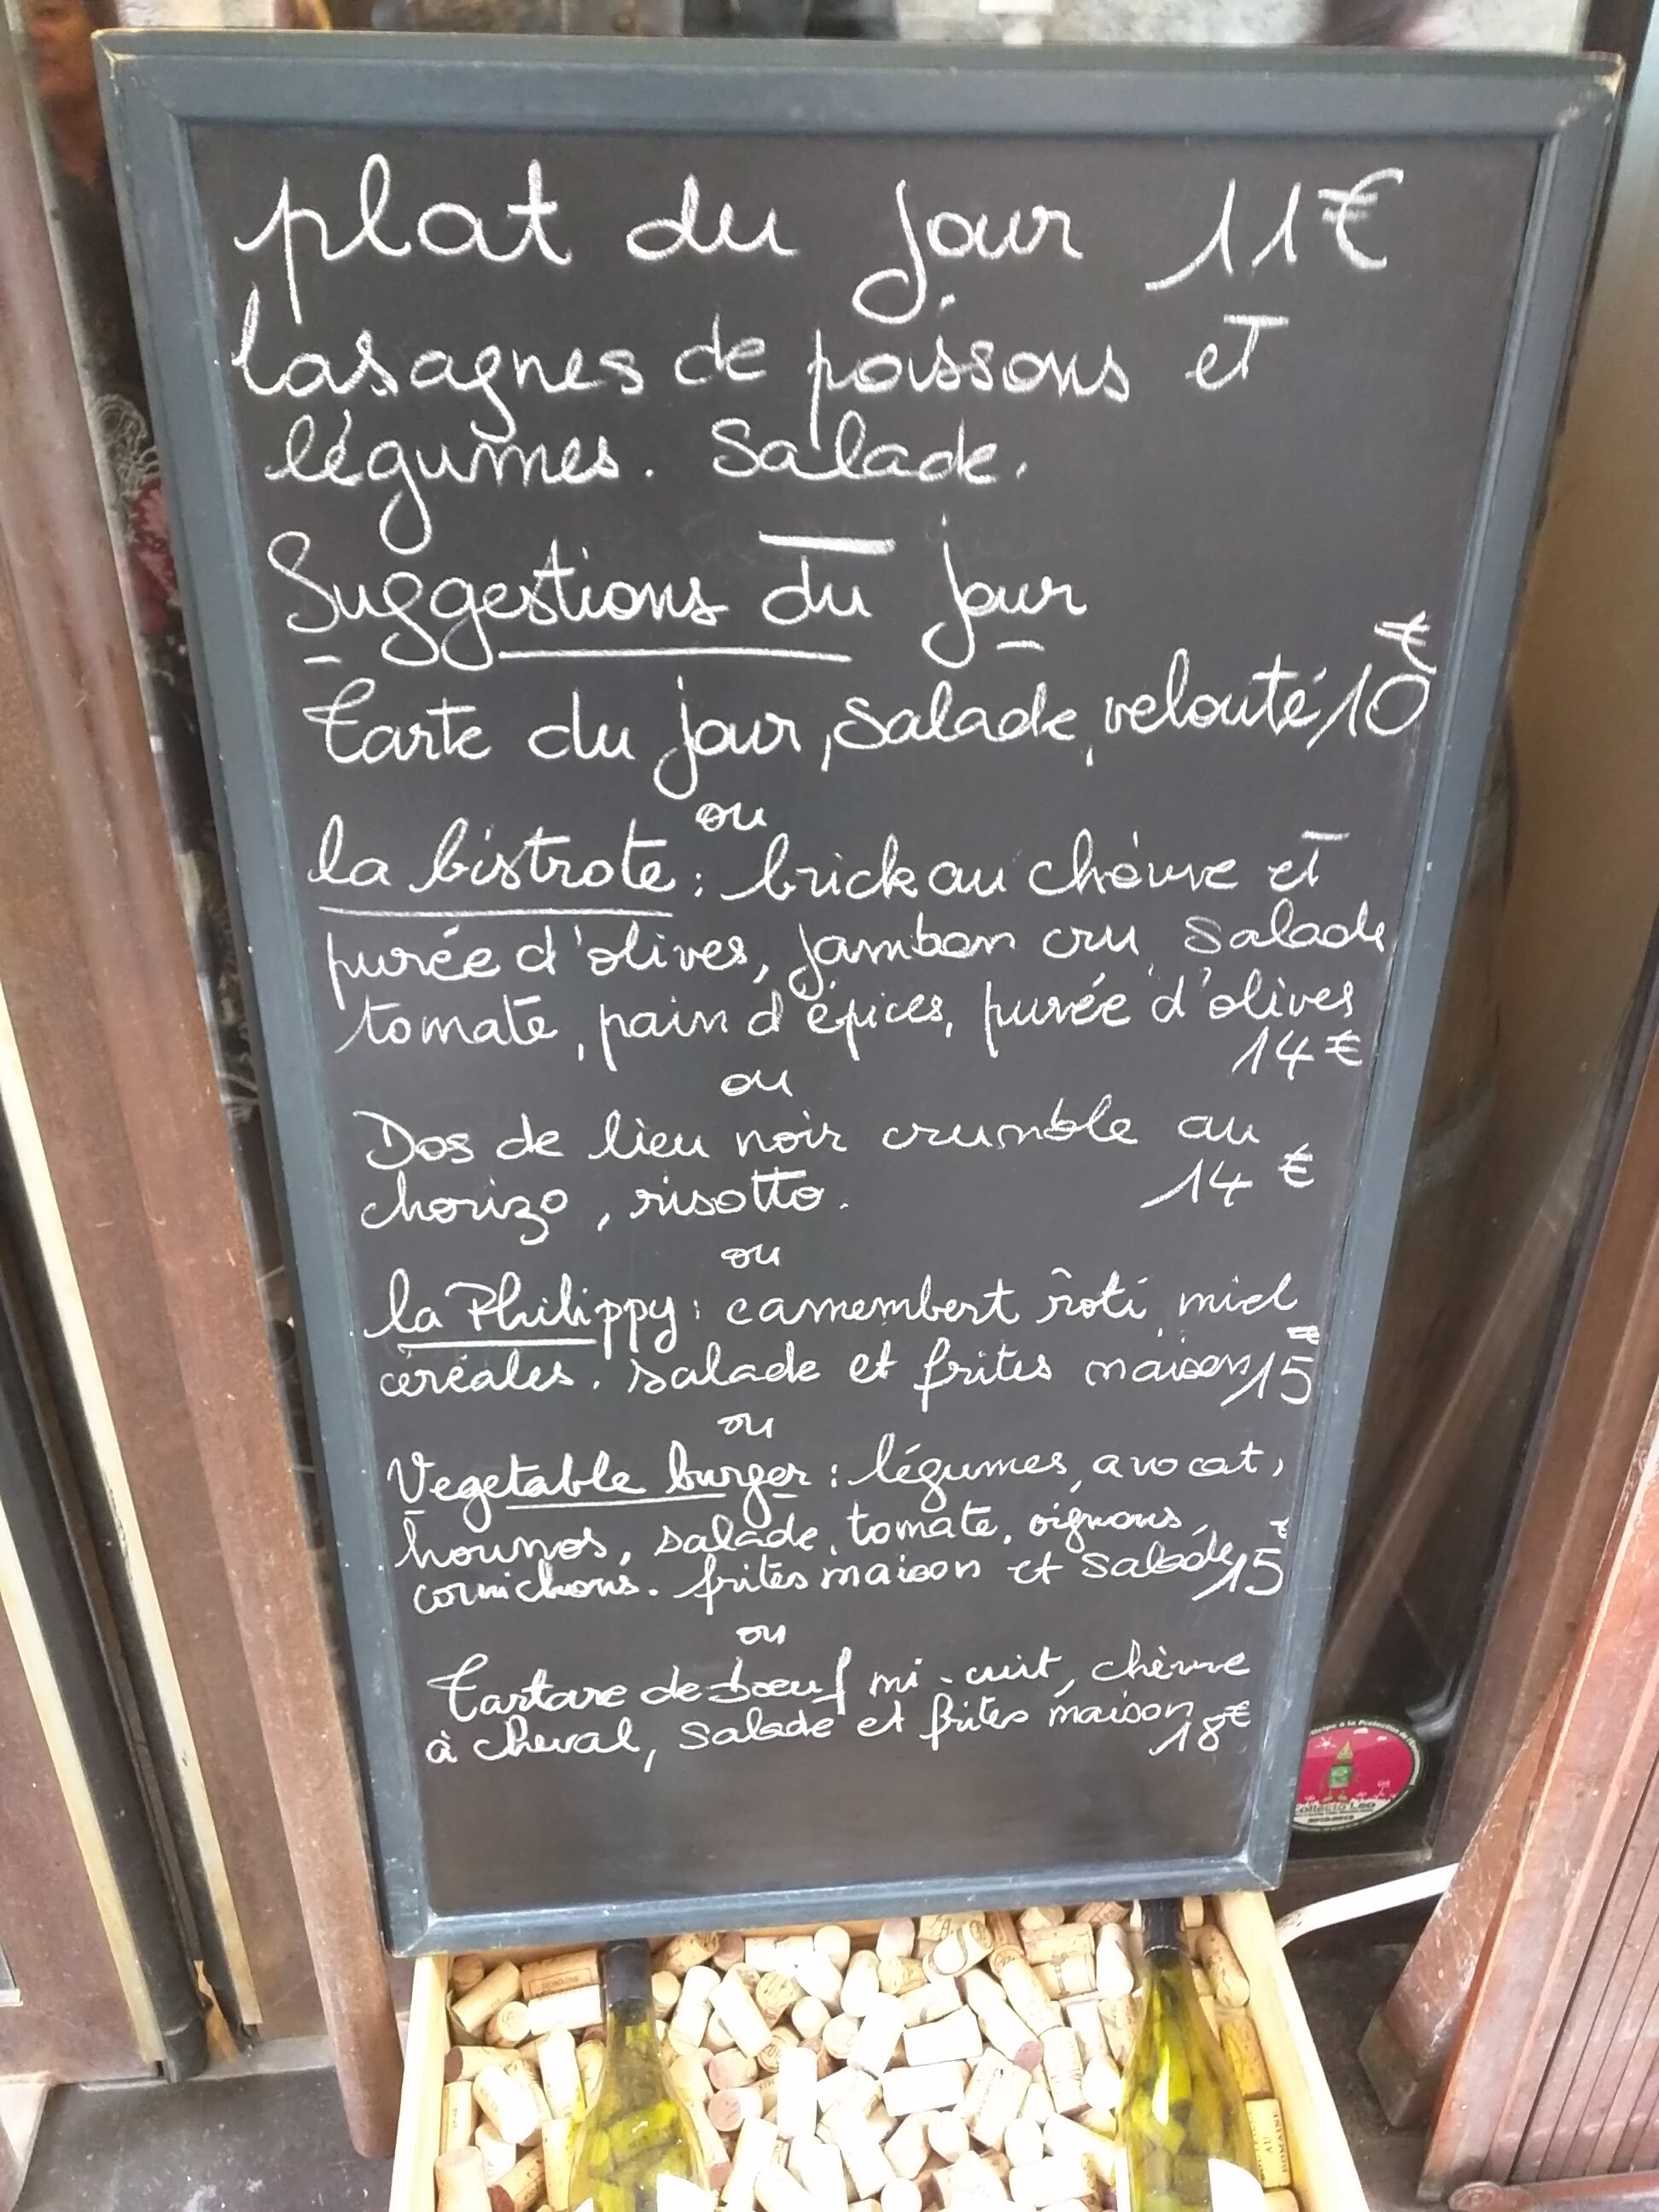 plat du jour 11€
lasagnes de poissons et
légumes. Salade.
Suggestions du jour
Tarte du jour, salade, velouté 10€
ou
la bistrote : brick au chèvre et
purée d'olives, jambon cru, salade
tomate, pain d'épices, purée d'olives
14€
ou
Dos de lieu noir crumble au
chorizo, risotto. 14€
ou
la Philippy : camembert rôti, miel
céréales. salade et frites maison 15€
ou
Vegetable burger : légumes, avocat,
houmos, salade, tomate, oignons,
cornichons. frites maison et salade 15€
ou
Tartare de boeuf mi-cuit, chèvre
à cheval, salade et frites maison
18€